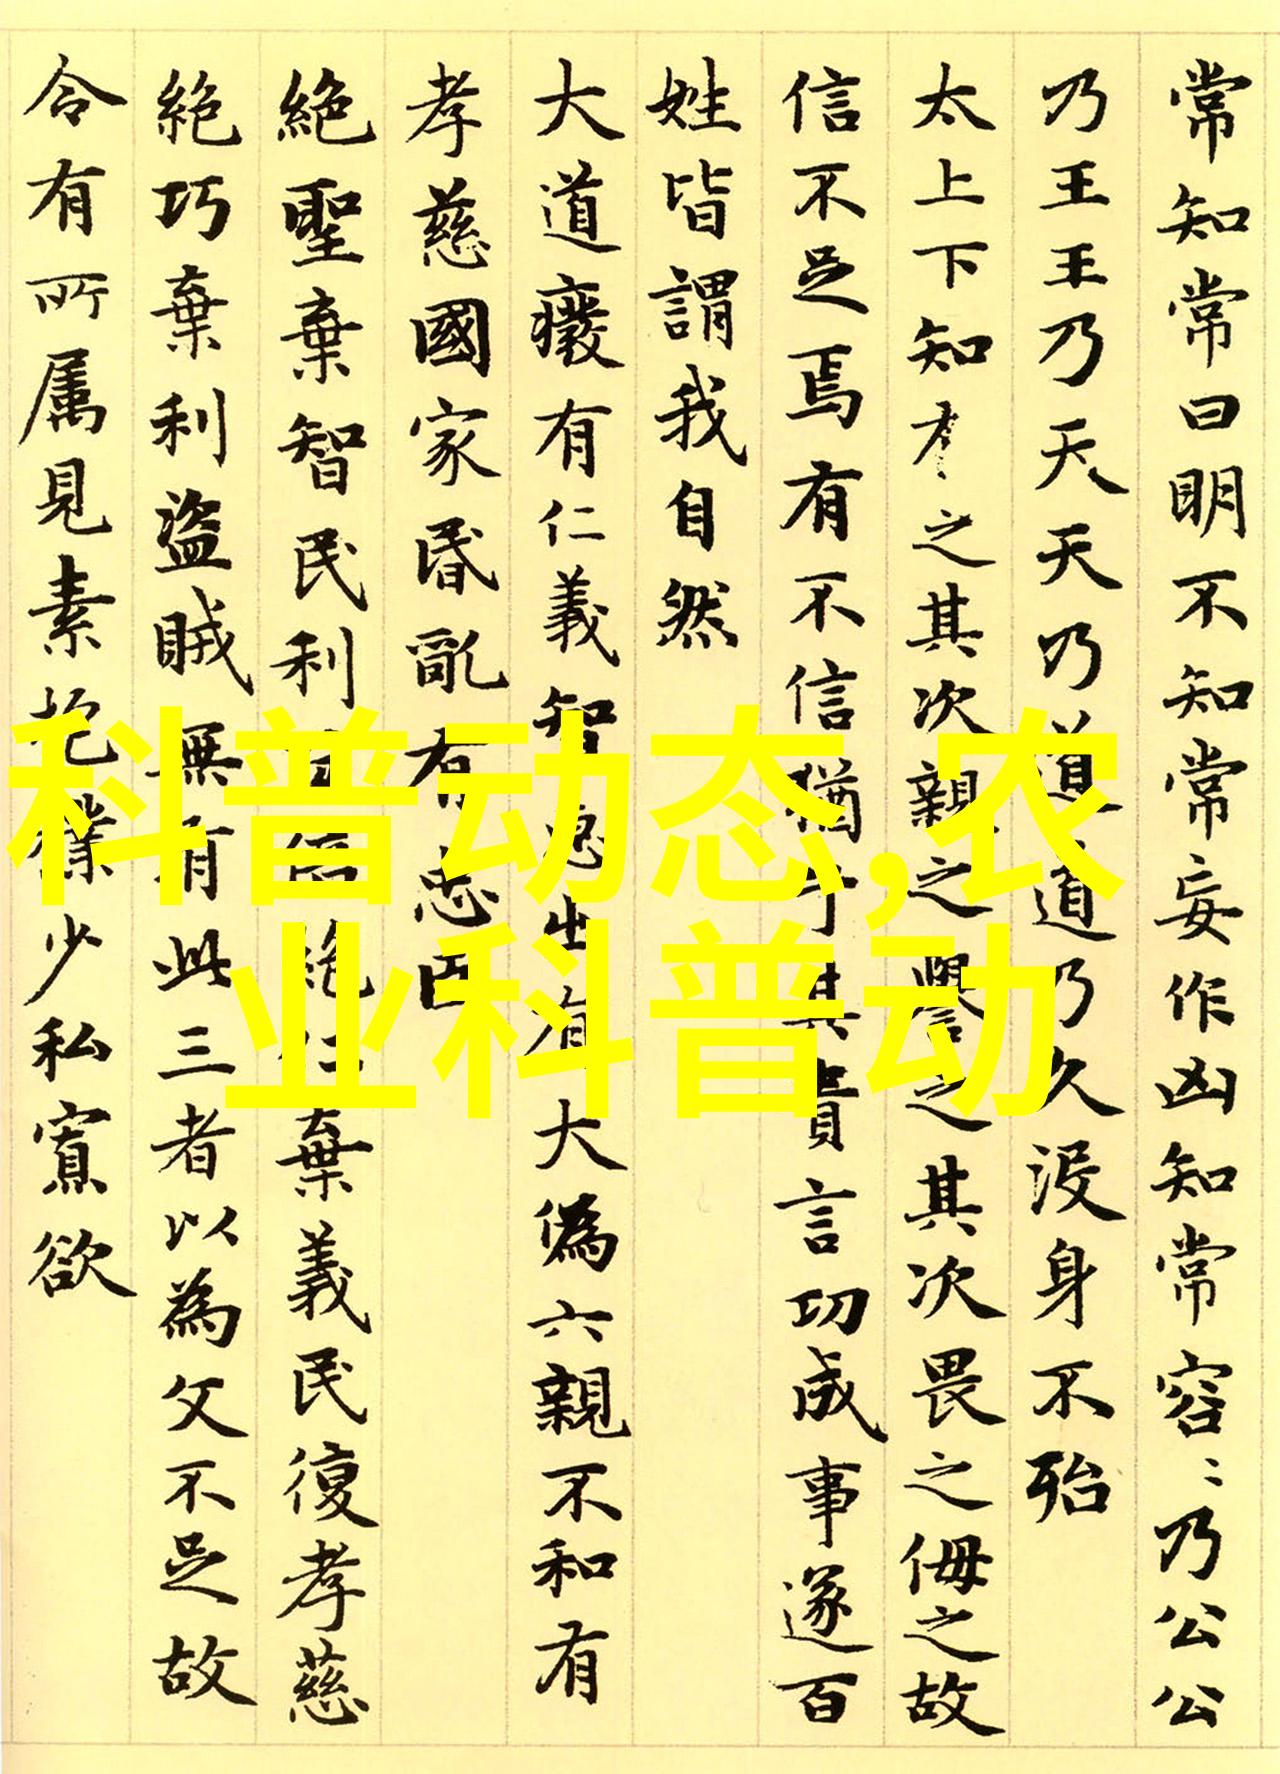 常知常曰明不知知常妄作凶知常容〻乃公公
乃王王乃天天乃道道乃久没身不殆
太上下知有之其次親之譽之其次畏之侮之故
信不足焉有不信信猶乎其貴言功成事遂百
姓皆謂我自然
大道癈有仁義智惠出有大偽六親不和有
孝慈國家昏亂有忠臣
絶聖棄智民利百倍絶仁棄義民復孝慈
絶巧棄利盗賊無有此三者以為文不足故
令有所属見素抱樸少私寡欲
科普动态,农
业科普动